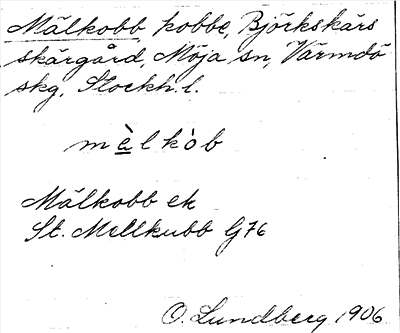 Mälkobb, kobbe, Björkskärs
skärgård, Möja sn, Värmdö
skg, Stockh. l.
mèlkòb
Mälkobb ek
St. Mellkubb G76
O. Lundberg 1906